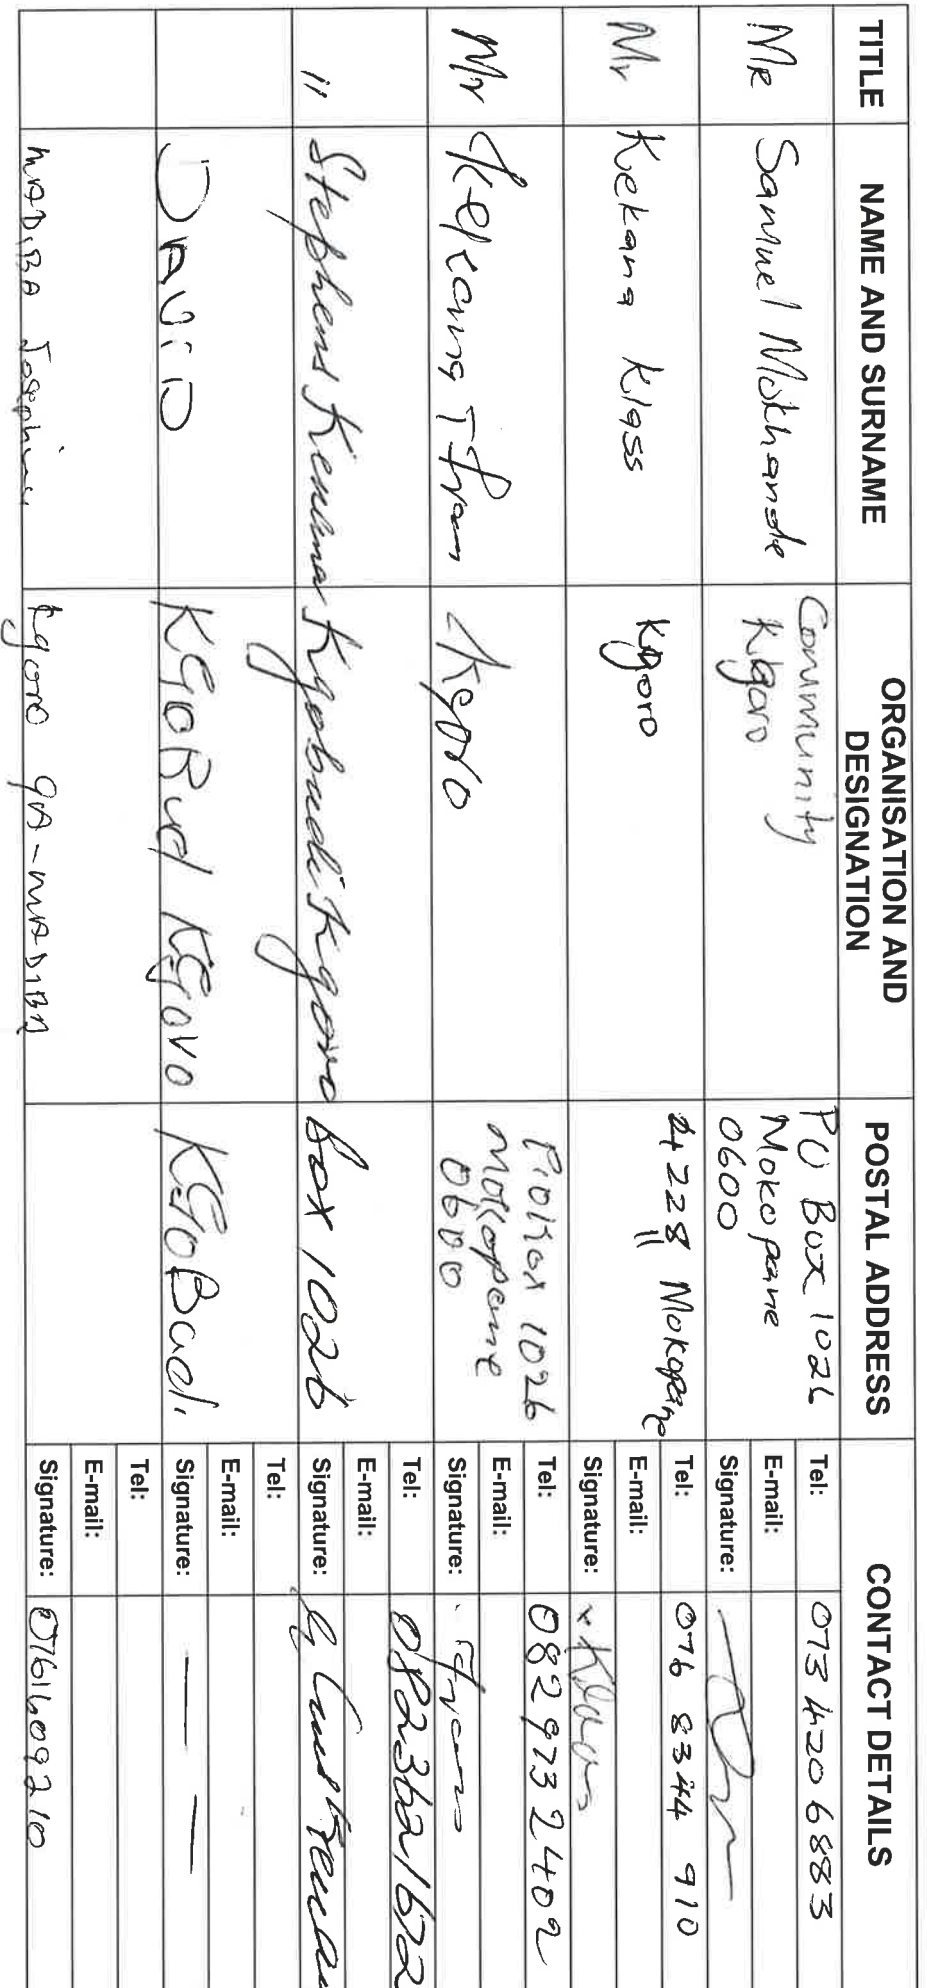 TITLE
NAME AND SURNAME
ORGANISATION AND
DESIGNATION
POSTAL ADDRESS
CONTACT DETAILS
MR
Samuel Mokhande
Community
Kgoro
PO Box 1026
Mokopane
0600
Tel: 073 420 6883
E-mail:
Signature:
Mr
Kekana Klass
Kgoro
228 Mokopane
Tel: 076 8344 910
E-mail:
Signature: x Klaas
Mr
Kekana
Kgoro
P.O Box 1026
Mokopane
0600
Tel: 082 973 2402
E-mail:
Signature:
"
Stephens Kekana
Kgobudi Kgoro
Box 1026
Tel: 0823621672
E-mail:
Signature:
DAViD
KGoBud KGoro
KGoBudi
Tel:
E-mail:
Signature: — —
MADIBA Josephine
Kgoro ga-MADIBA
Tel:
E-mail:
Signature: 0761609210